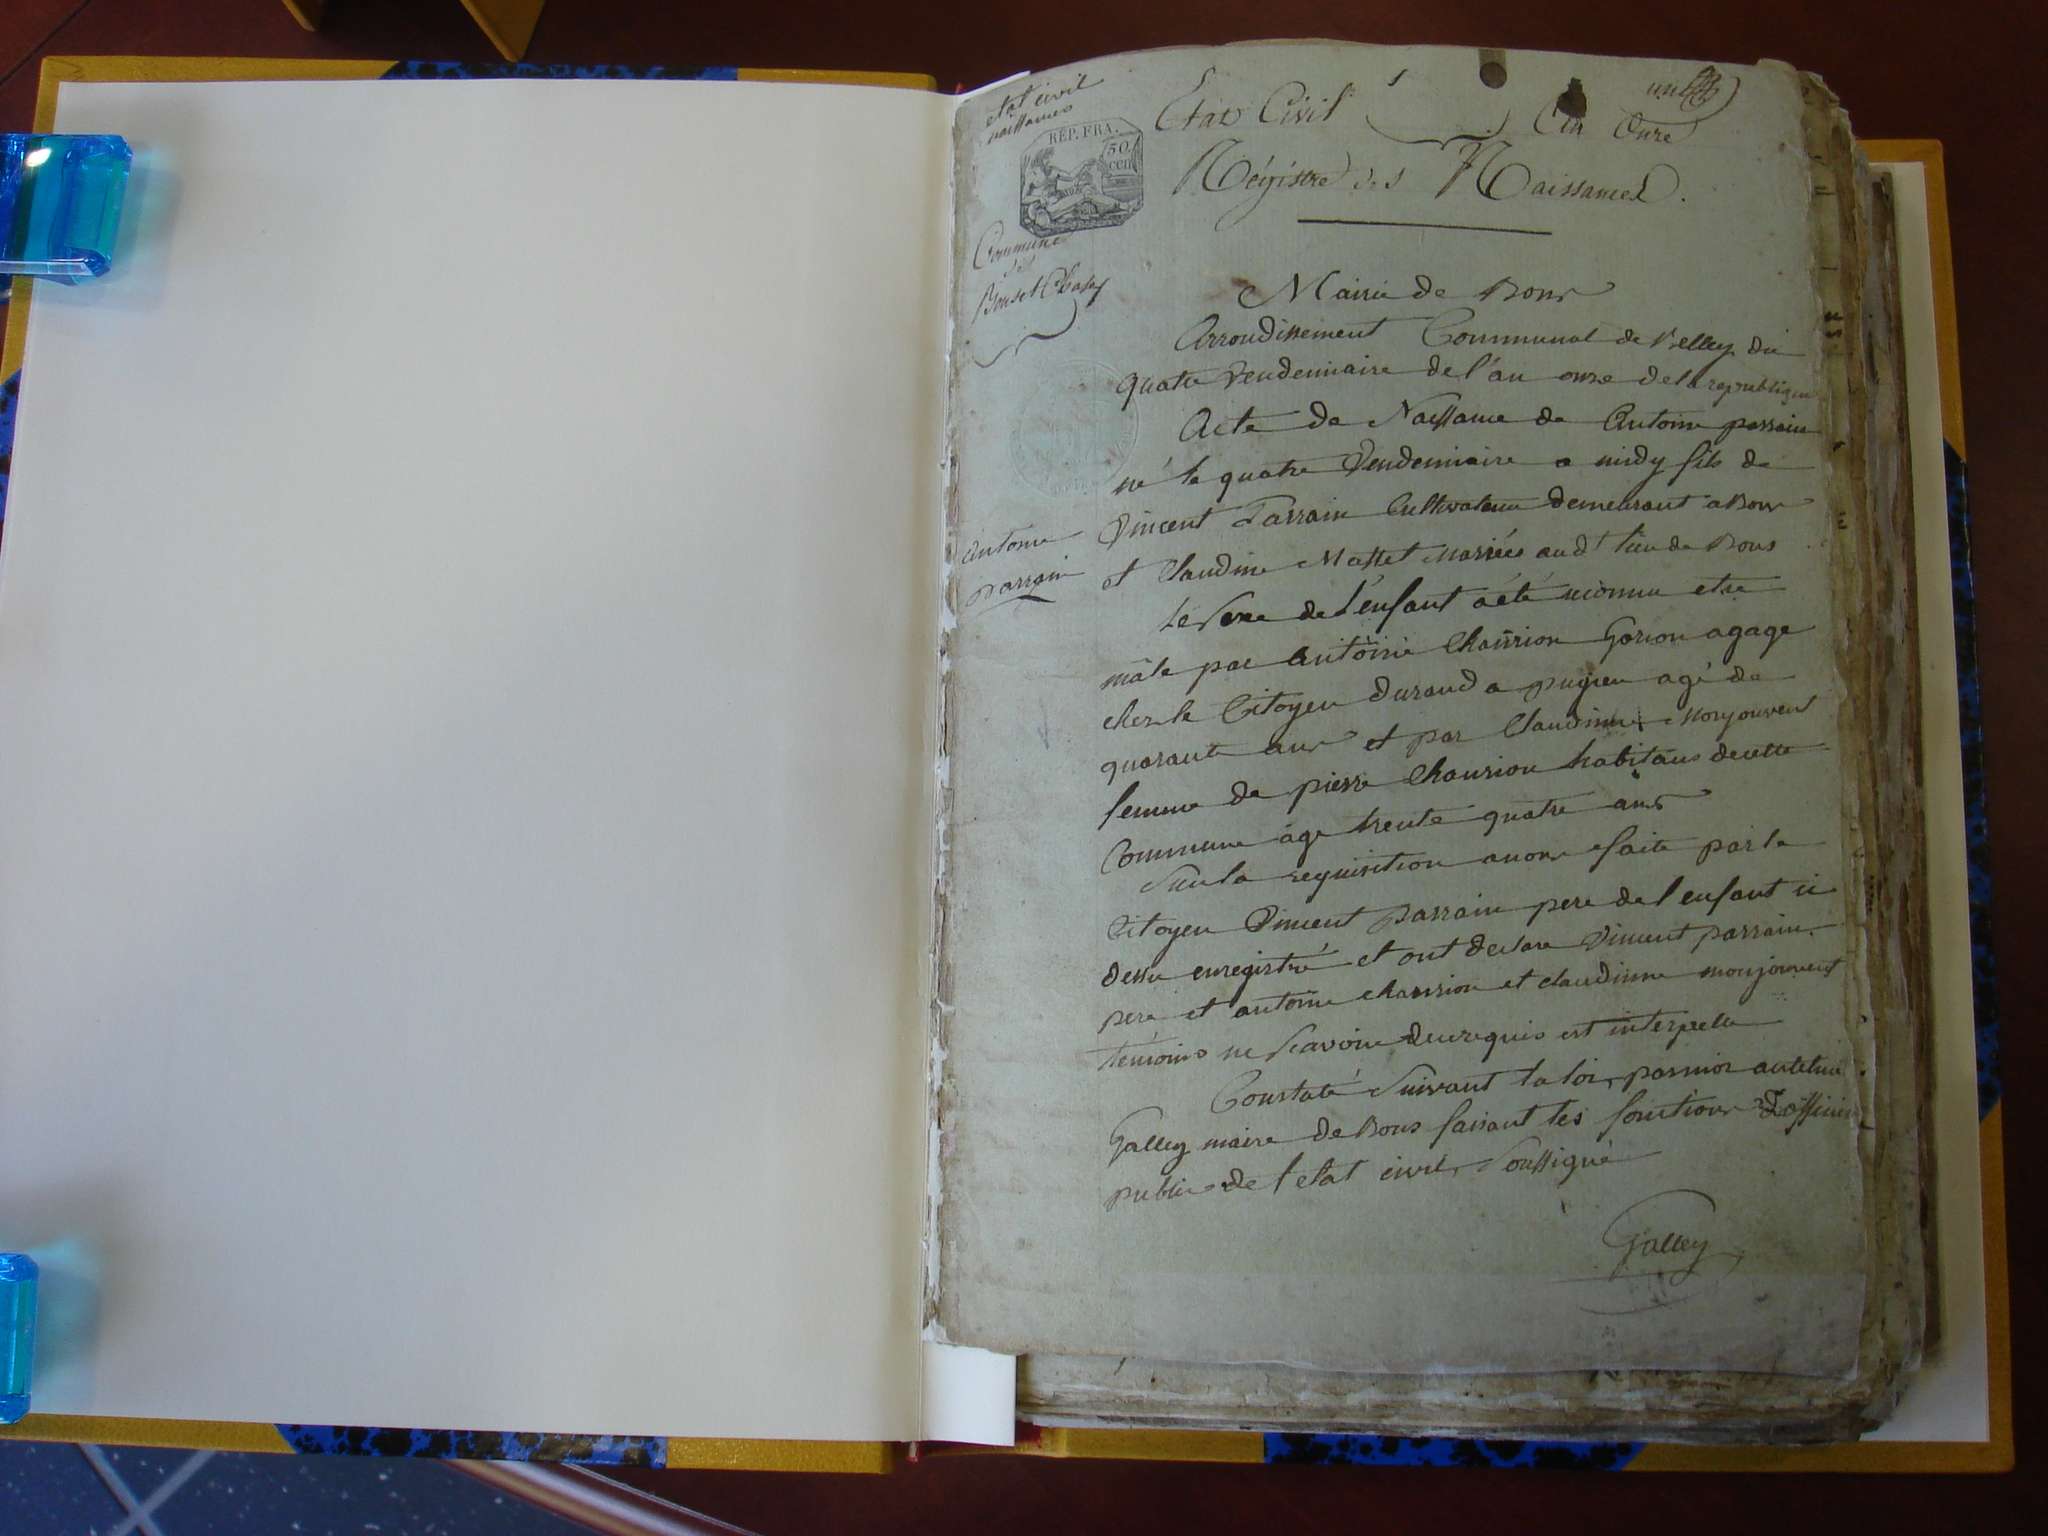 etat civil
naissances
REP. FRA.
50
cen
Etat Civil
An Onze
Régistre des Naissances.
Commune
des
Bons et Chaley
Mairie de Bons
Arrondissement Communal de Belley du
quatre Vendemiaire de l'an onze de la republique
Acte de Naissance de Antoine parrain
né le quatre Vendemiaire a midy fils de
Vincent Parrain Cultivateur demeurant a Bons
et Claudine Masset Mariées audt lieu de Bons
Antoine
parrain
le sexe de l'enfant a été reconnu etre
mâle par Antoine Chaurion Garçon agage
chez le Citoyen durand a pugieu agé de
quarante ans et par Claudine Monjouvent
femme de pierre Chaurion habitans de cette
Commune âge trente quatre ans
Sur la requisition a nous faite par le
Citoyen Vincent parrain pere de l'enfant ci
dessu enregistré et ont declare Vincent parrain
pere et antoine chaurion et claudinne monjouvent
témoins ne scavoir de ce requis et interpelle
Constaté Suivant la loi par moi
Galley maire de Bons faisant les fonctions d'officier
public de l'etat civil, soussigné
Galley